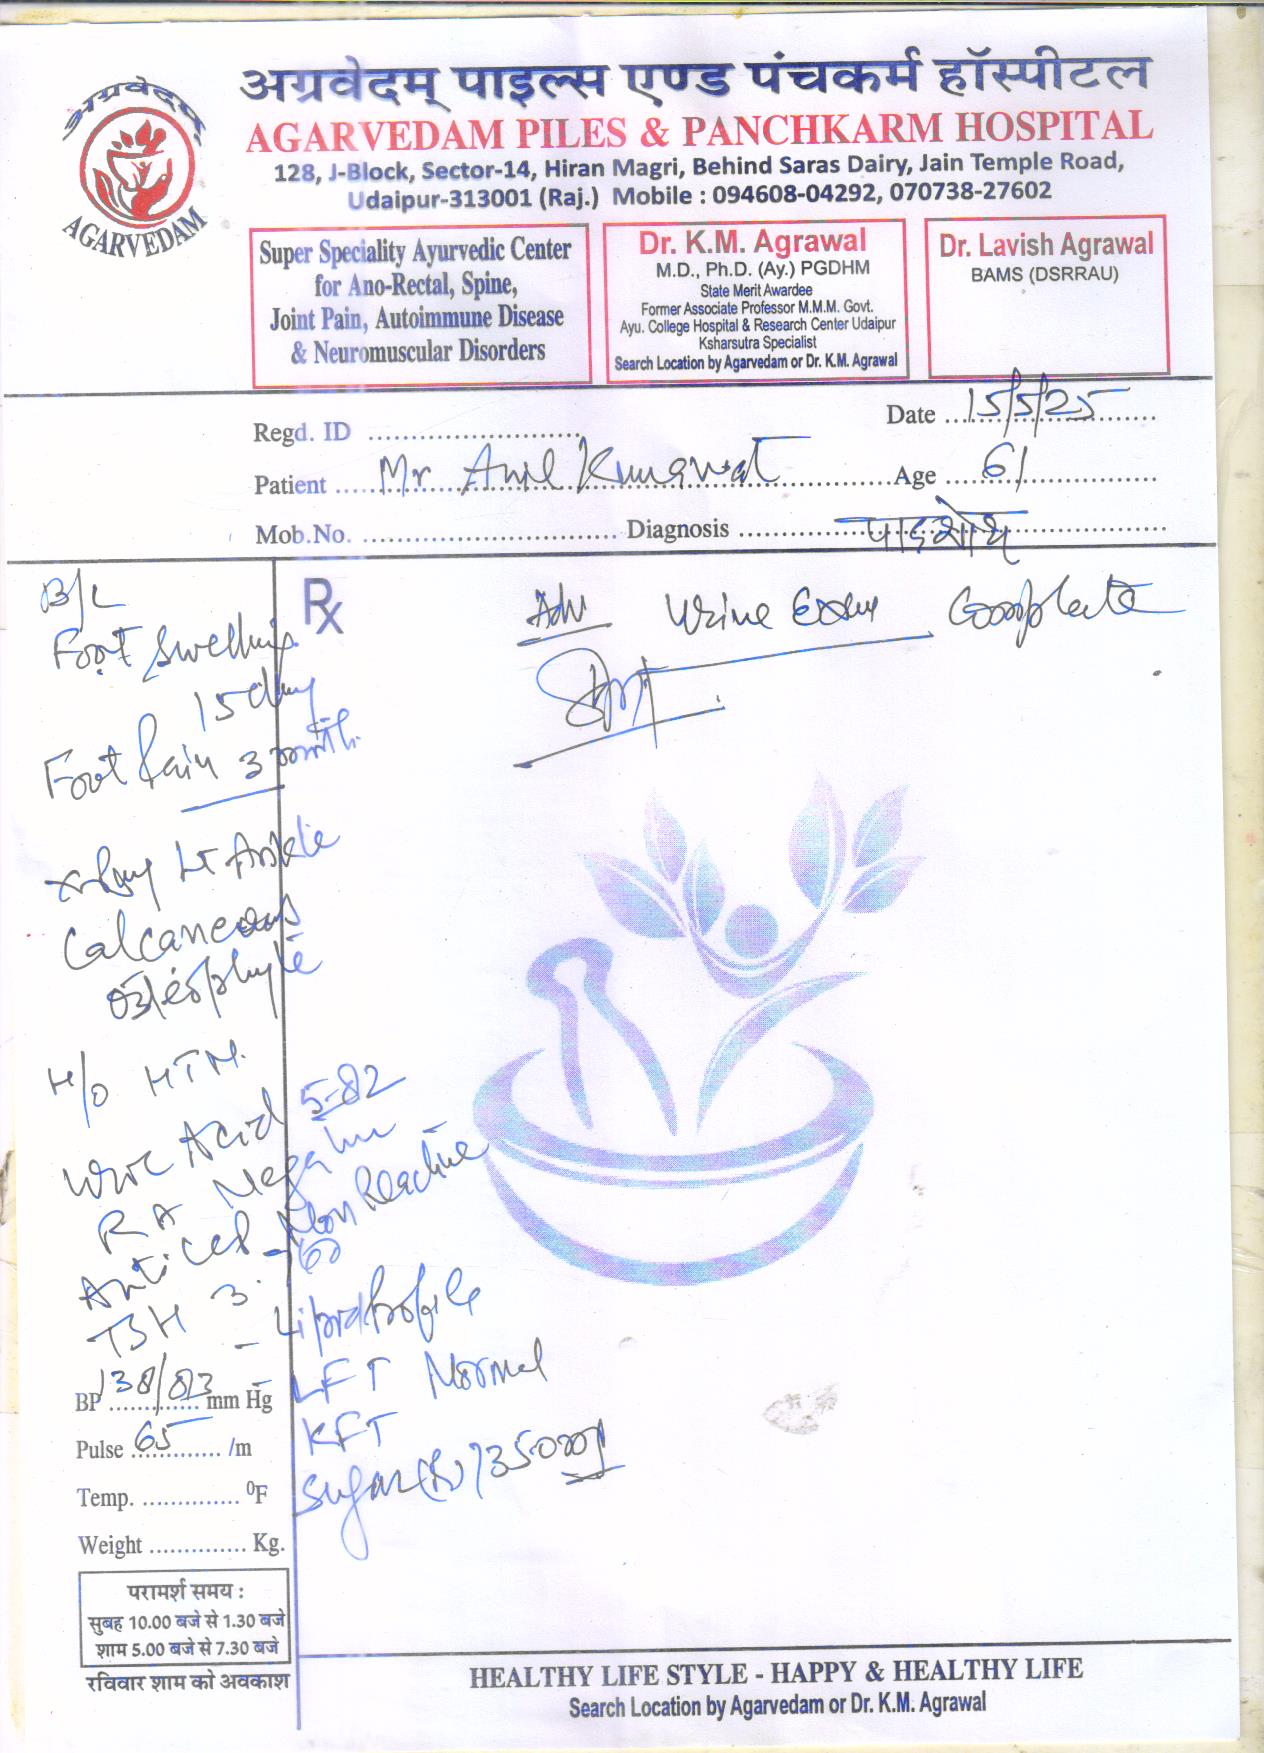 अग्रवेदम् पाइल्स एण्ड पंचकर्म हॉस्पीटल
AGARVEDAM PILES & PANCHKARM HOSPITAL
128, J-Block, Sector-14, Hiran Magri, Behind Saras Dairy, Jain Temple Road,
Udaipur-313001 (Raj.) Mobile : 094608-04292, 070738-27602
अग्रवेदम्
AGARVEDAM
Super Speciality Ayurvedic Center
for Ano-Rectal, Spine,
Joint Pain, Autoimmune Disease
& Neuromuscular Disorders
Dr. K.M. Agrawal
M.D., Ph.D. (Ay.) PGDHM
State Merit Awardee
Former Associate Professor M.M.M. Govt.
Ayu. College Hospital & Research Center Udaipur
Ksharsutra Specialist
Search Location by Agarvedam or Dr. K.M. Agrawal
Dr. Lavish Agrawal
BAMS (DSRRAU)
Regd. ID
Date 15/5/25
Patient Mr Anil Kumawat Age 61
Mob.No. Diagnosis पादशोथ
B/L
Foot Swelling
15 day
Foot Pain 3 month
x-Ray Lt Ankle
Calcaneous
Osteophyte
H/O HTN.
Uric Acid 5-82
RA Negative
Anti CCP - Non Reactive
TSH 3.60
- Lipid Profile
LFT Normal
KFT
Sugar (R)
Rx
Adv Urine Exam Complete
BP 138/83 mm Hg
Pulse 65 /m
Temp. ⁰F
Weight Kg.
परामर्श समय :
सुबह 10.00 बजे से 1.30 बजे
शाम 5.00 बजे से 7.30 बजे
रविवार शाम को अवकाश
HEALTHY LIFE STYLE - HAPPY & HEALTHY LIFE
Search Location by Agarvedam or Dr. K.M. Agrawal